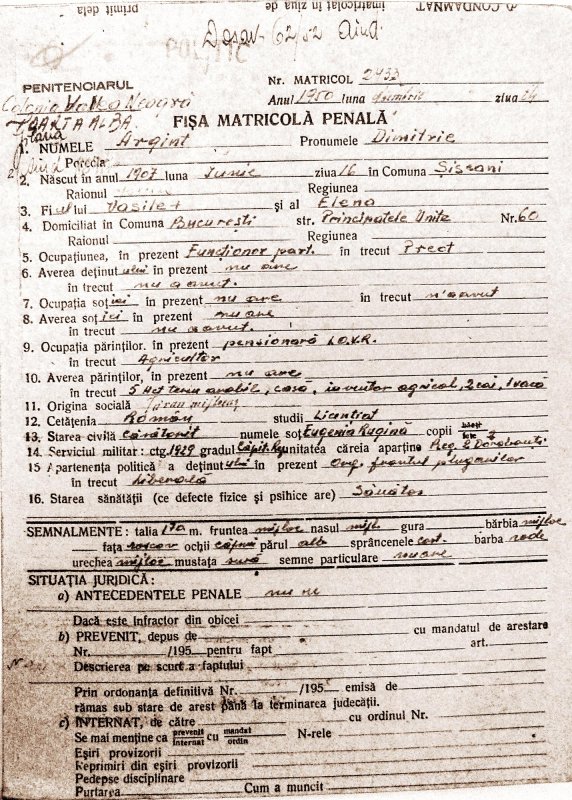 CONDAMNAT
inmatriculat în ziua de
primit dela
Dosar 62/52 Aiud
Nr. MATRICOL 2433
PENITENCIARUL
Anul 1950 luna ziua 24
Colonia Valea Neagră
POARTA ALBA
FIȘA MATRICOLĂ PENALĂ
1. NUMELE Argint Pronumele Dimitrie
Porecla
2. Născut în anul 1907 luna Iunie ziua 16 în Comuna Șișcani
Raionul Regiunea
3. Fiul lui Vasile + și al Elena
4. Domiciliat în Comuna București str. Principatele Unite Nr. 60
Raionul Regiunea
5. Ocupațiunea, în prezent Funcționar part. în trecut Preot
6. Averea deținutului în prezent nu are
în trecut nu a avut.
7. Ocupația soției în prezent nu are în trecut n'a avut
8. Averea soției în prezent nu are
în trecut nu a avut.
9. Ocupația părinților, în prezent pensionară I.O.V.R.
în trecut Agricultor
10. Averea părinților, în prezent nu are
în trecut 5 Ha teren arabil, casă, inventar agricol, 2 cai, 1 vacă
11. Origina socială țăran mijlocaș
12. Cetățenia Român studii Licențiat
13. Starea civilă căsătorit numele soț Eugenia Ragină copii băeți fete 2
14. Serviciul militar: ctg. 1929 gradul Căpit. Rez. unitatea căreia aparține Reg. 2 Dorobanți
15 Apartenența politică a deținutului în prezent Org. frontul plugarilor
în trecut liberală
16. Starea sănătății (ce defecte fizice și psihice are) Sănătos
SEMNALMENTE: talia 170 m. fruntea mijloc nasul mijl. gura bărbia mijloc
fața ochii căprui părul alb sprâncenele cast. barba rade
urechea mijloc mustața semne particulare nu are
SITUAȚIA JURIDICĂ:
a) ANTECEDENTELE PENALE nu are
Dacă este infractor din obicei
b) PREVENIT, depus de cu mandatul de arestare
Nr. /195 pentru fapt art.
Descrierea pe scurt a faptului
Prin ordonanta definitivă Nr. /195 emisă de
rămas sub stare de arest până la terminarea judecății.
c) INTERNAT, de către cu ordinul Nr.
Se mai menține ca prevenit internat cu mandat ordin N-rele
Eșiri provizorii
Reprimiri din eșiri provizorii
Pedepse disciplinare
Purtarea Cum a muncit